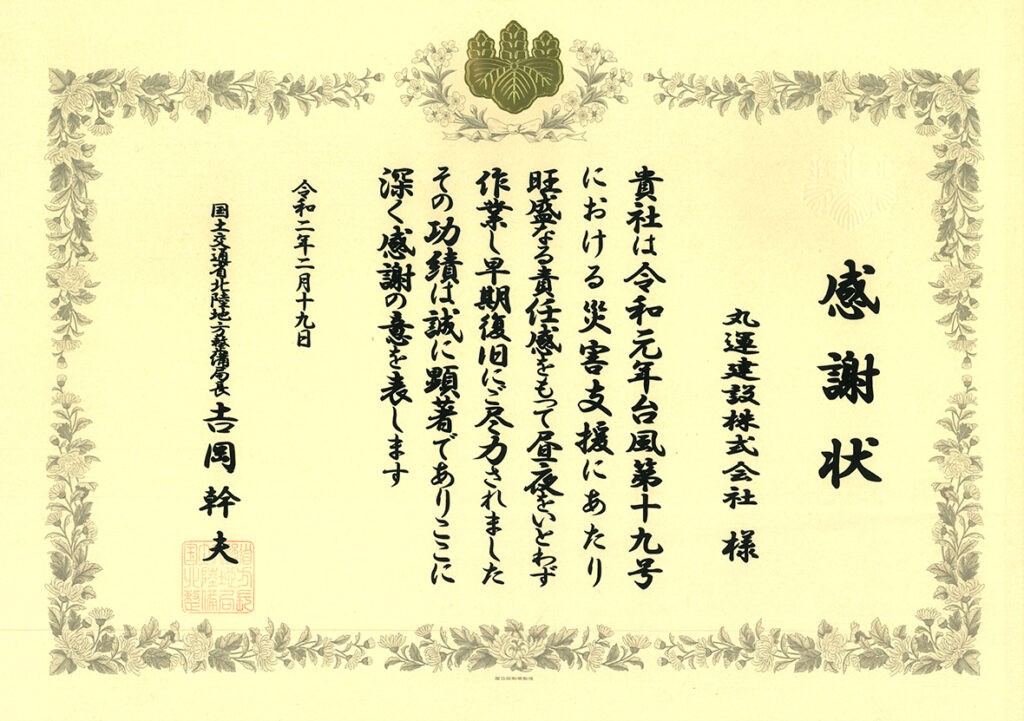 感謝状
丸運建設株式会社 様
貴社は令和元年台風第十九号
における災害支援にあたり
旺盛なる責任感をもって昼夜をいとわず
作業し早期復旧にご尽力されました
その功績は誠に顕著でありここに
深く感謝の意を表します
令和二年二月十九日
国土交通省北陸地方整備局長 吉岡幹夫